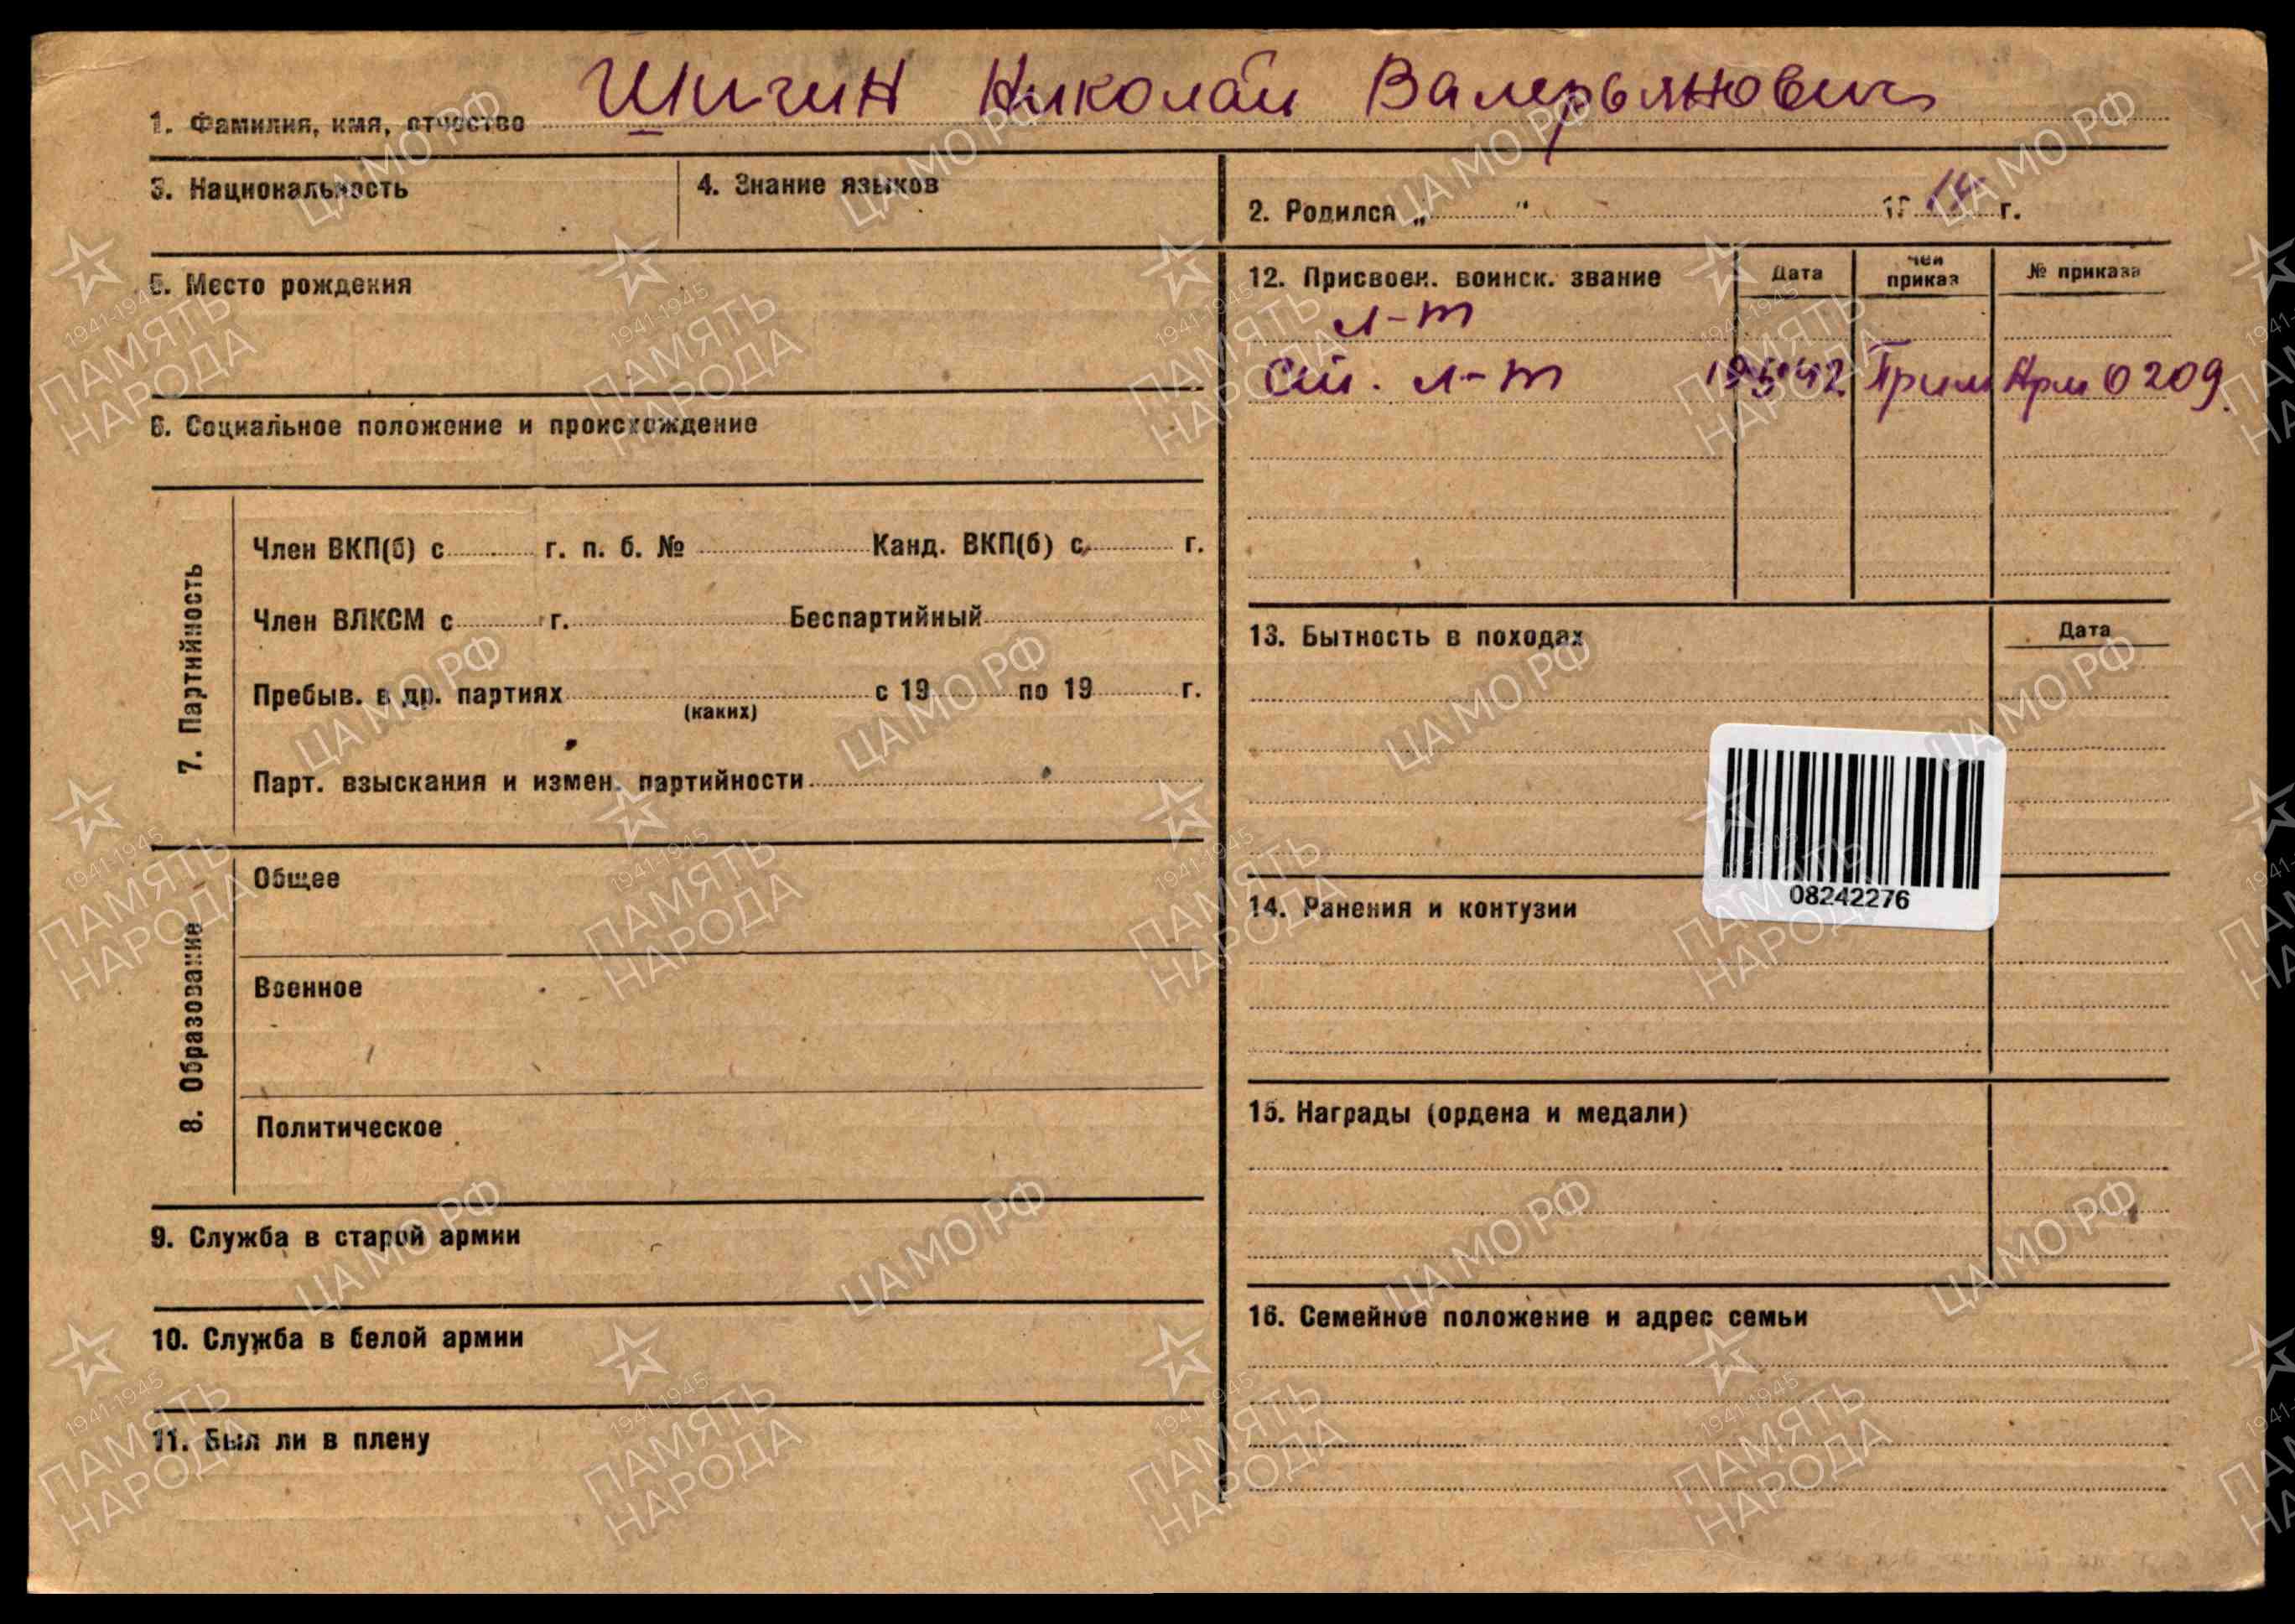 1. Фамилия, имя, отчество Шигин Николай Валерьянович
3. Национальность
4. Знание языков
2. Родился „ " 19 г.
5. Место рождения
6. Социальное положение и происхождение
7. Партийность
Член ВКП(б) с г. п. б. № Канд. ВКП(б) с г.
Член ВЛКСМ с г. Беспартийный
Пребыв. в др. партиях с 19 по 19 г.
(каких)
Парт. взыскания и измен. партийности
8. Образование
Общее
Военное
Политическое
9. Служба в старой армии
10. Служба в белой армии
11. Был ли в плену
12. Присвоен. воинск. звание Дата чей приказ № приказа
л-т
Ст. л-т 19 5 42 Прим Арм 0209
13. Бытность в походах Дата
08242276
14. Ранения и контузии
15. Награды (ордена и медали)
16. Семейное положение и адрес семьи
ЦА МО РФ
1941-1945
ПАМЯТЬ
НАРОДА